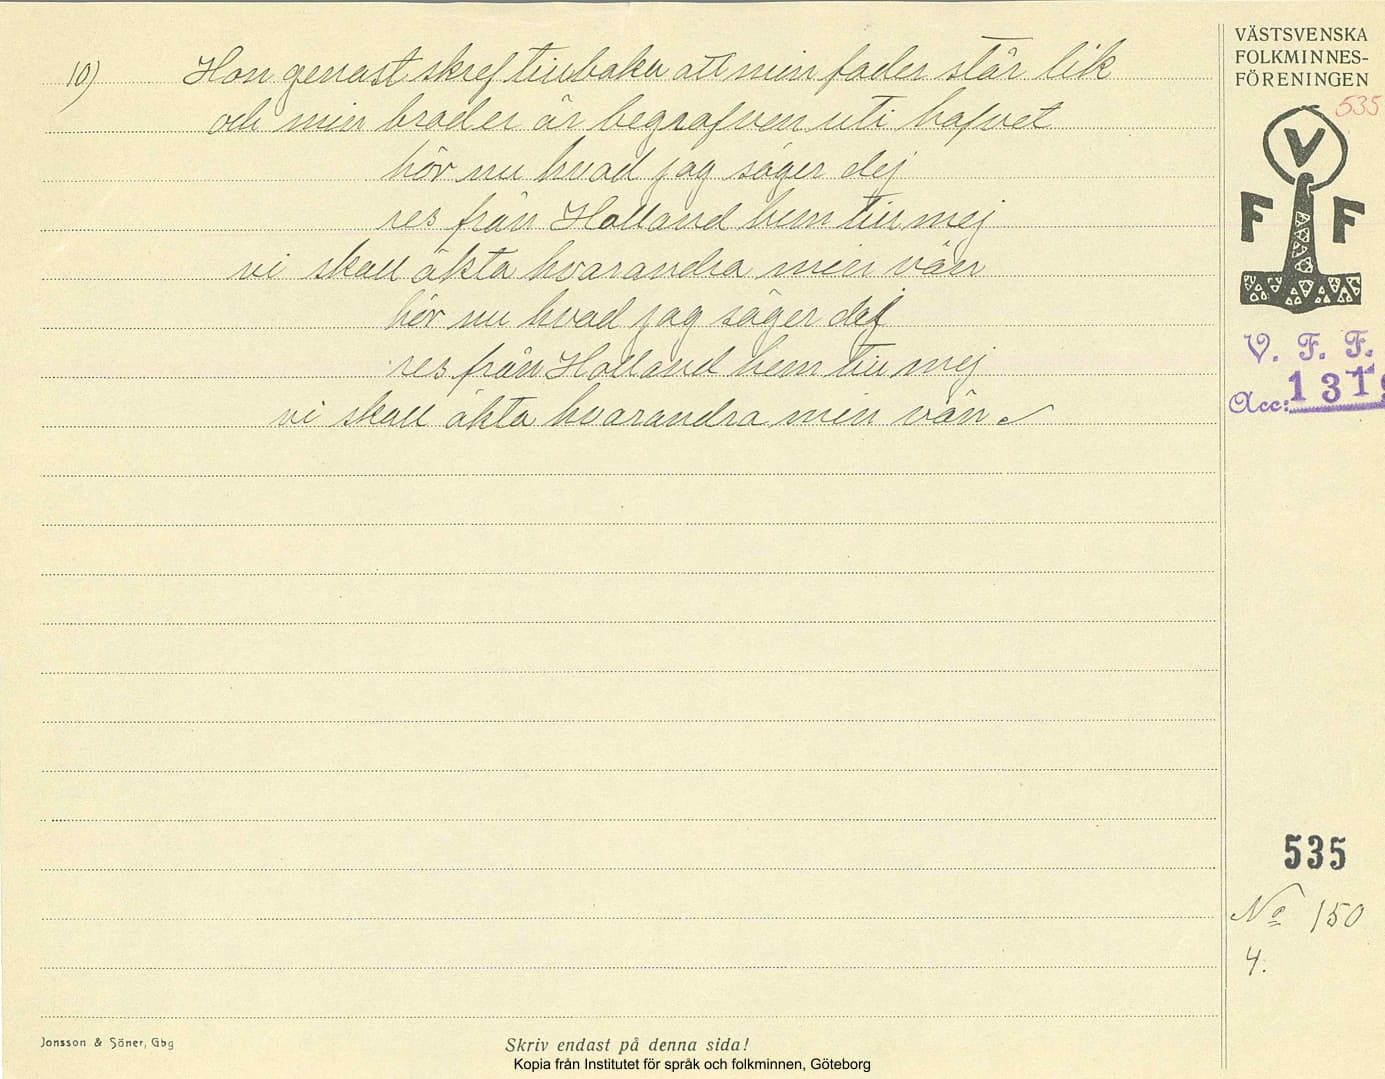 10) Hon genast skref tillbaka att min fader står lik
och min broder är begrafven uti hafvet
hör nu hvad jag säger dej
res från Holland hem till mej
vi skall äkta hvarandra min vän
hör nu hvad jag säger dej
res från Holland hem till mej
vi skall äkta hvarandra min vän.
VÄSTSVENSKA
FOLKMINNES-
FÖRENINGEN
535
V
F F
V. F. F.
Acc: 1319
535
No 150
4.
Jonsson & Söner, Gbg
Skriv endast på denna sida!
Kopia från Institutet för språk och folkminnen, Göteborg